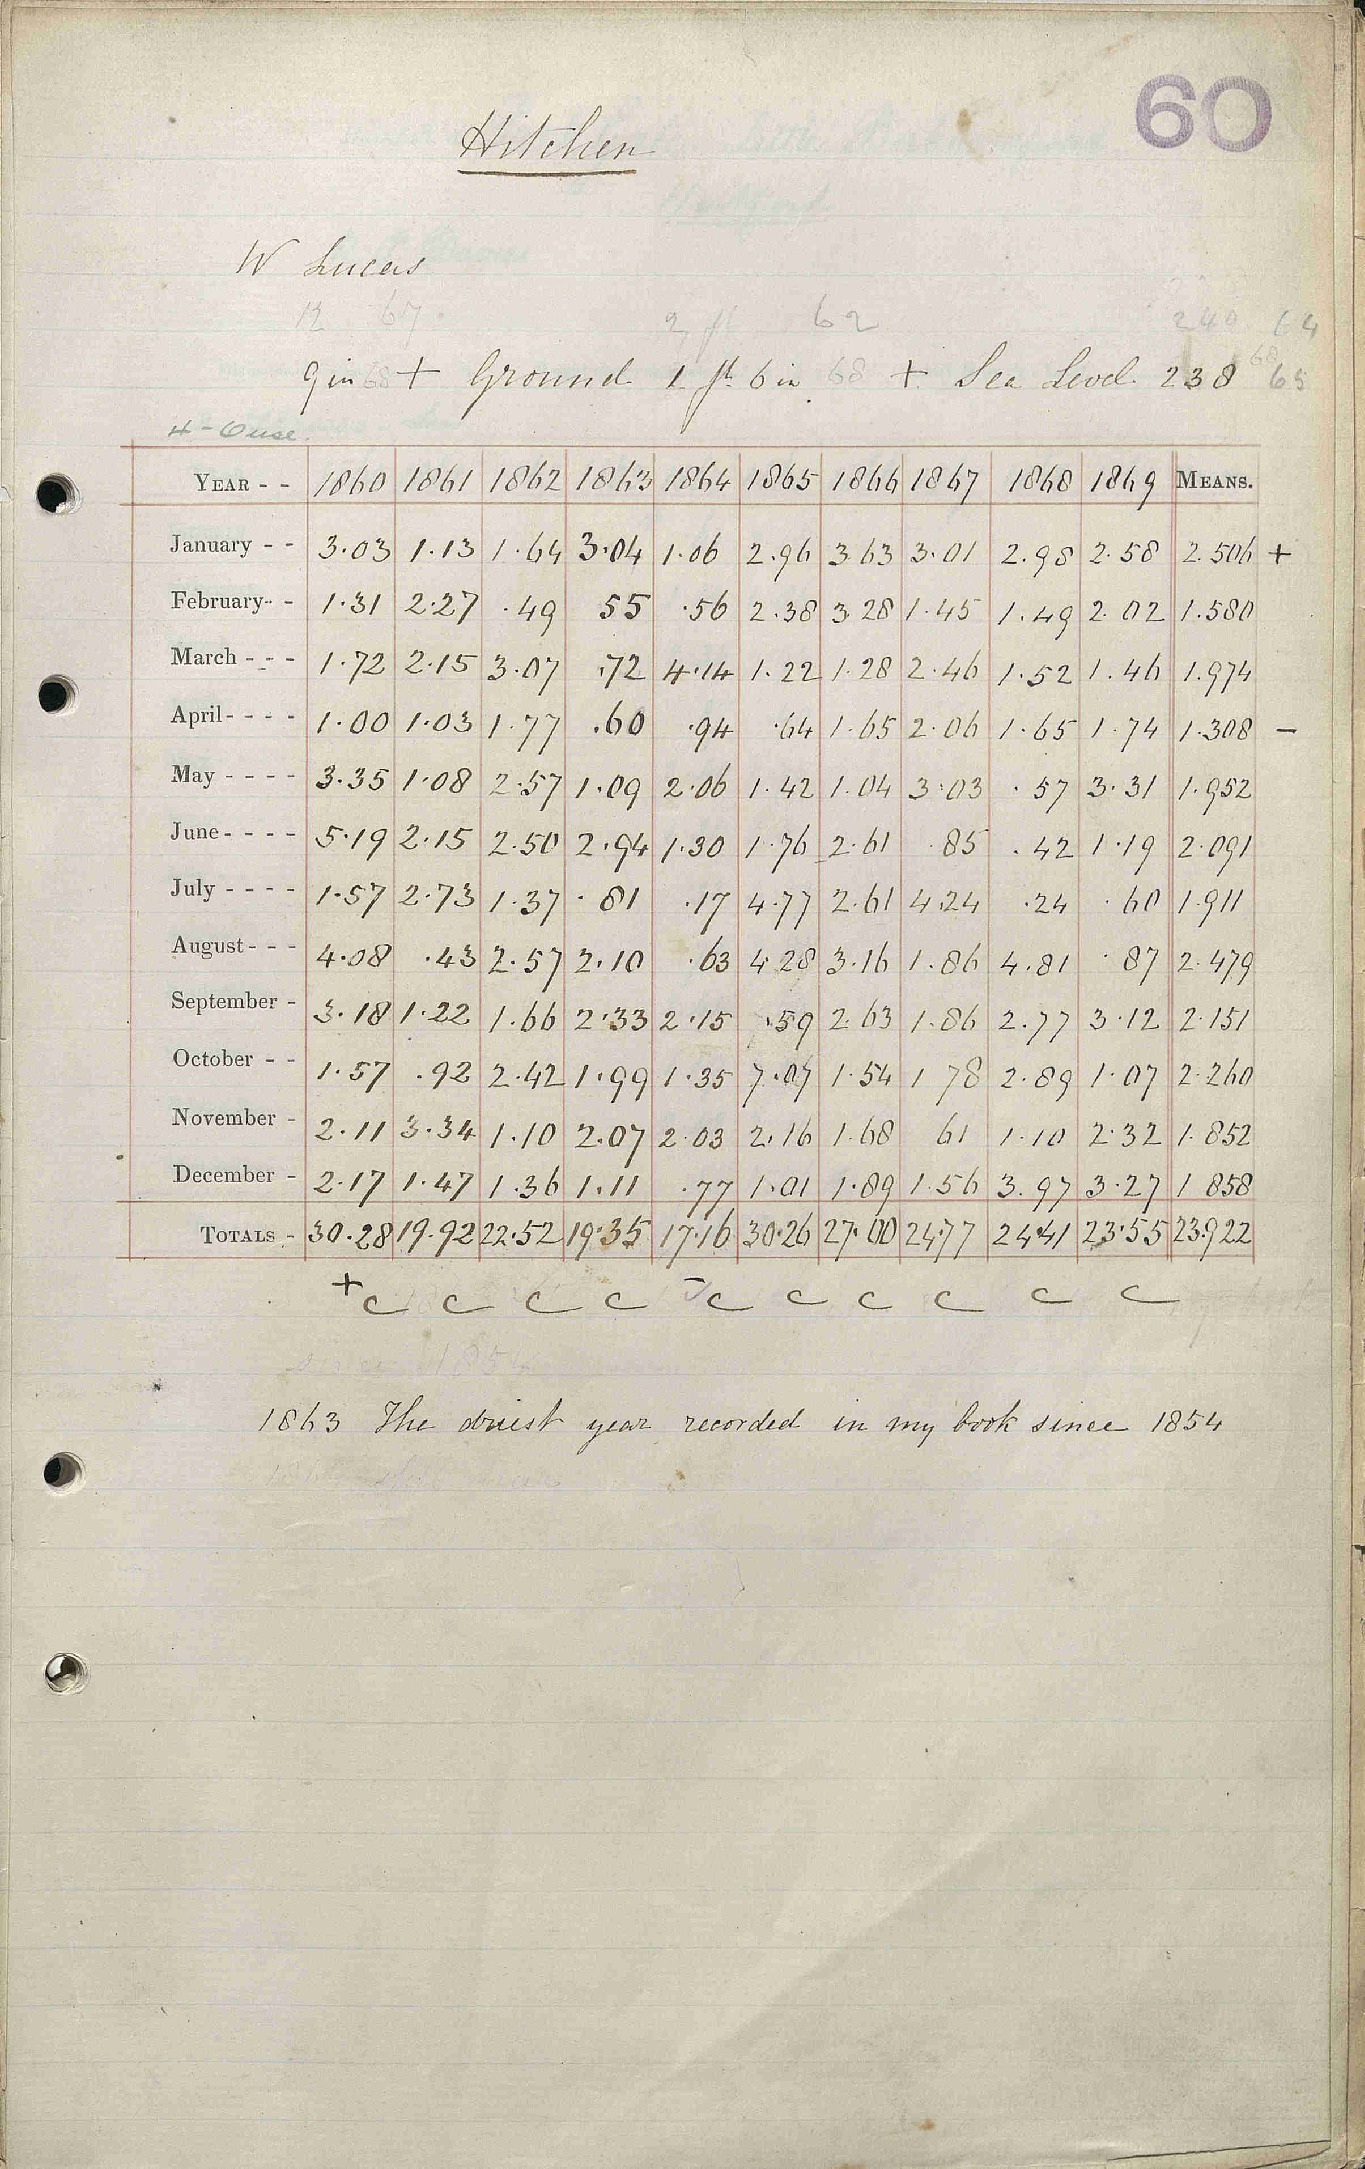 60
Hitchen
W Lucas
12 67
2 ft 62
240 64
9 in 68 + Ground 1 ft 6 in 68 + Sea Level 238 68 65
4 - Ouse.
YEAR - - 1860 1861 1862 1863 1864 1865 1866 1867 1868 1869 MEANS.
January - - 3.03 1.13 1.64 3.04 1.06 2.96 3 63 3.01 2.98 2.58 2.506 +
February- - 1.31 2.27 .49 55 .56 2.38 3 28 1.45 1.49 2.02 1.580
March - - - 1.72 2.15 3.07 .72 4.14 1.22 1.28 2.46 1.52 1.46 1.974
April- - - - 1.00 1.03 1.77 .60 .94 .64 1.65 2.06 1.65 1.74 1.308 -
May - - - - 3.35 1.08 2.57 1.09 2.06 1.42 1.04 3.03 .57 3.31 1.952
June- - - - 5.19 2.15 2.50 2.94 1.30 1.76 2.61 .85 .42 1.19 2.091
July - - - - 1.57 2.73 1.37 .81 .17 4.77 2.61 4.24 .24 .60 1.911
August- - - 4.08 .43 2.57 2.10 .63 4.28 3.16 1.86 4.81 .87 2.479
September - 3.18 1.22 1.66 2.33 2.15 .59 2.63 1.86 2.77 3.12 2.151
October - - 1.57 .92 2.42 1.99 1.35 7.07 1.54 1 78 2.89 1.07 2.260
November - 2.11 3.34 1.10 2.07 2.03 2.16 1.68 61 1.10 2.32 1.852
December - 2.17 1.47 1.36 1.11 .77 1.01 1.89 1.56 3.97 3.27 1 858
TOTALS - 30.28 19.92 22.52 19.35 17.16 30.26 27.00 24.77 24.41 23.55 23.922
+ c c c c - c c c c c c
since 1854
1863 The driest year recorded in my book since 1854